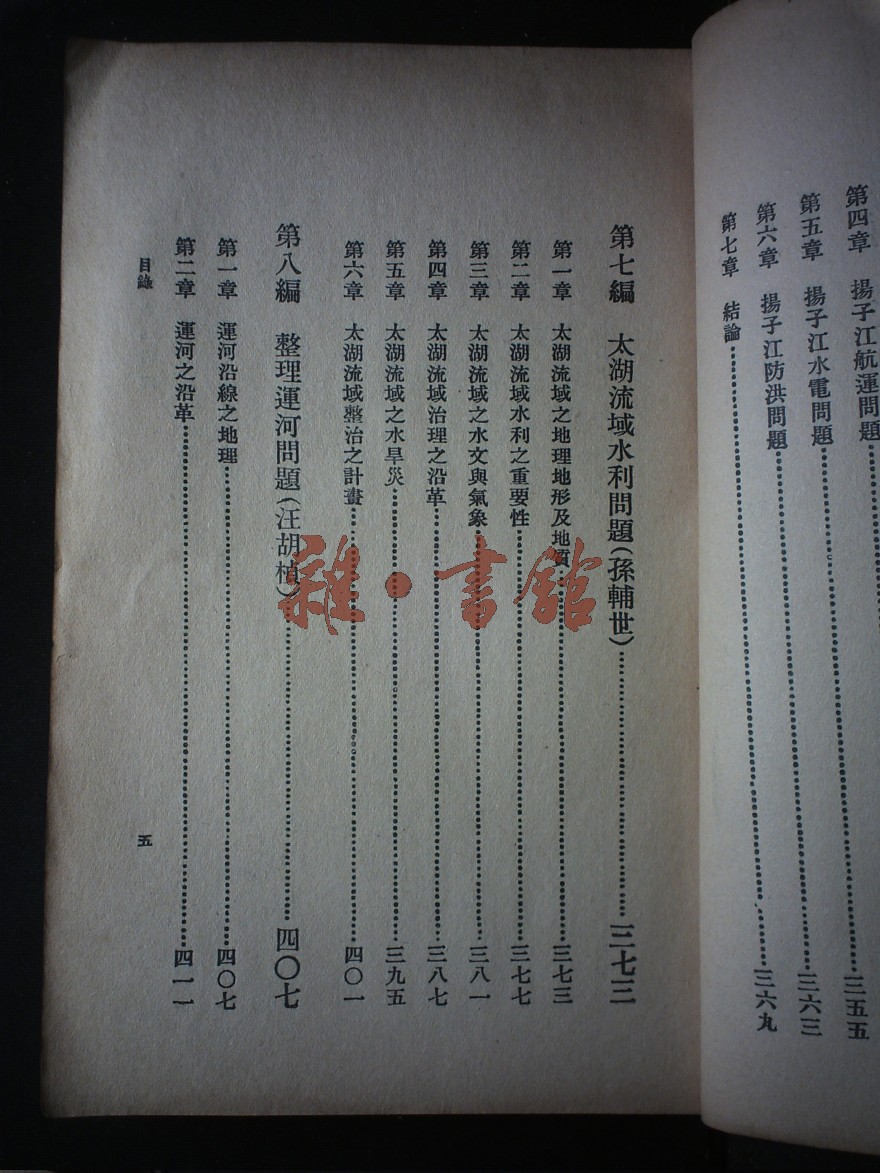 第四章 揚子江航運問題……三五五
第五章 揚子江水電問題……三六三
第六章 揚子江防洪問題
第七章 結論……三六九
第七編 太湖流域水利問題(孫輔世)……三七三
第一章 太湖流域之地理地形及地質……三七三
第二章 太湖流域水利之重要性……三七七
第三章 太湖流域之水文與氣象……三八一
第四章 太湖流域治理之沿革……三八七
第五章 太湖流域之水旱災……三九五
第六章 太湖流域整治之計畫……四〇一
第八編 整理運河問題(汪胡楨)……四〇七
第一章 運河沿線之地理……四〇七
第二章 運河之沿革……四一一
目錄
五
雜·書館